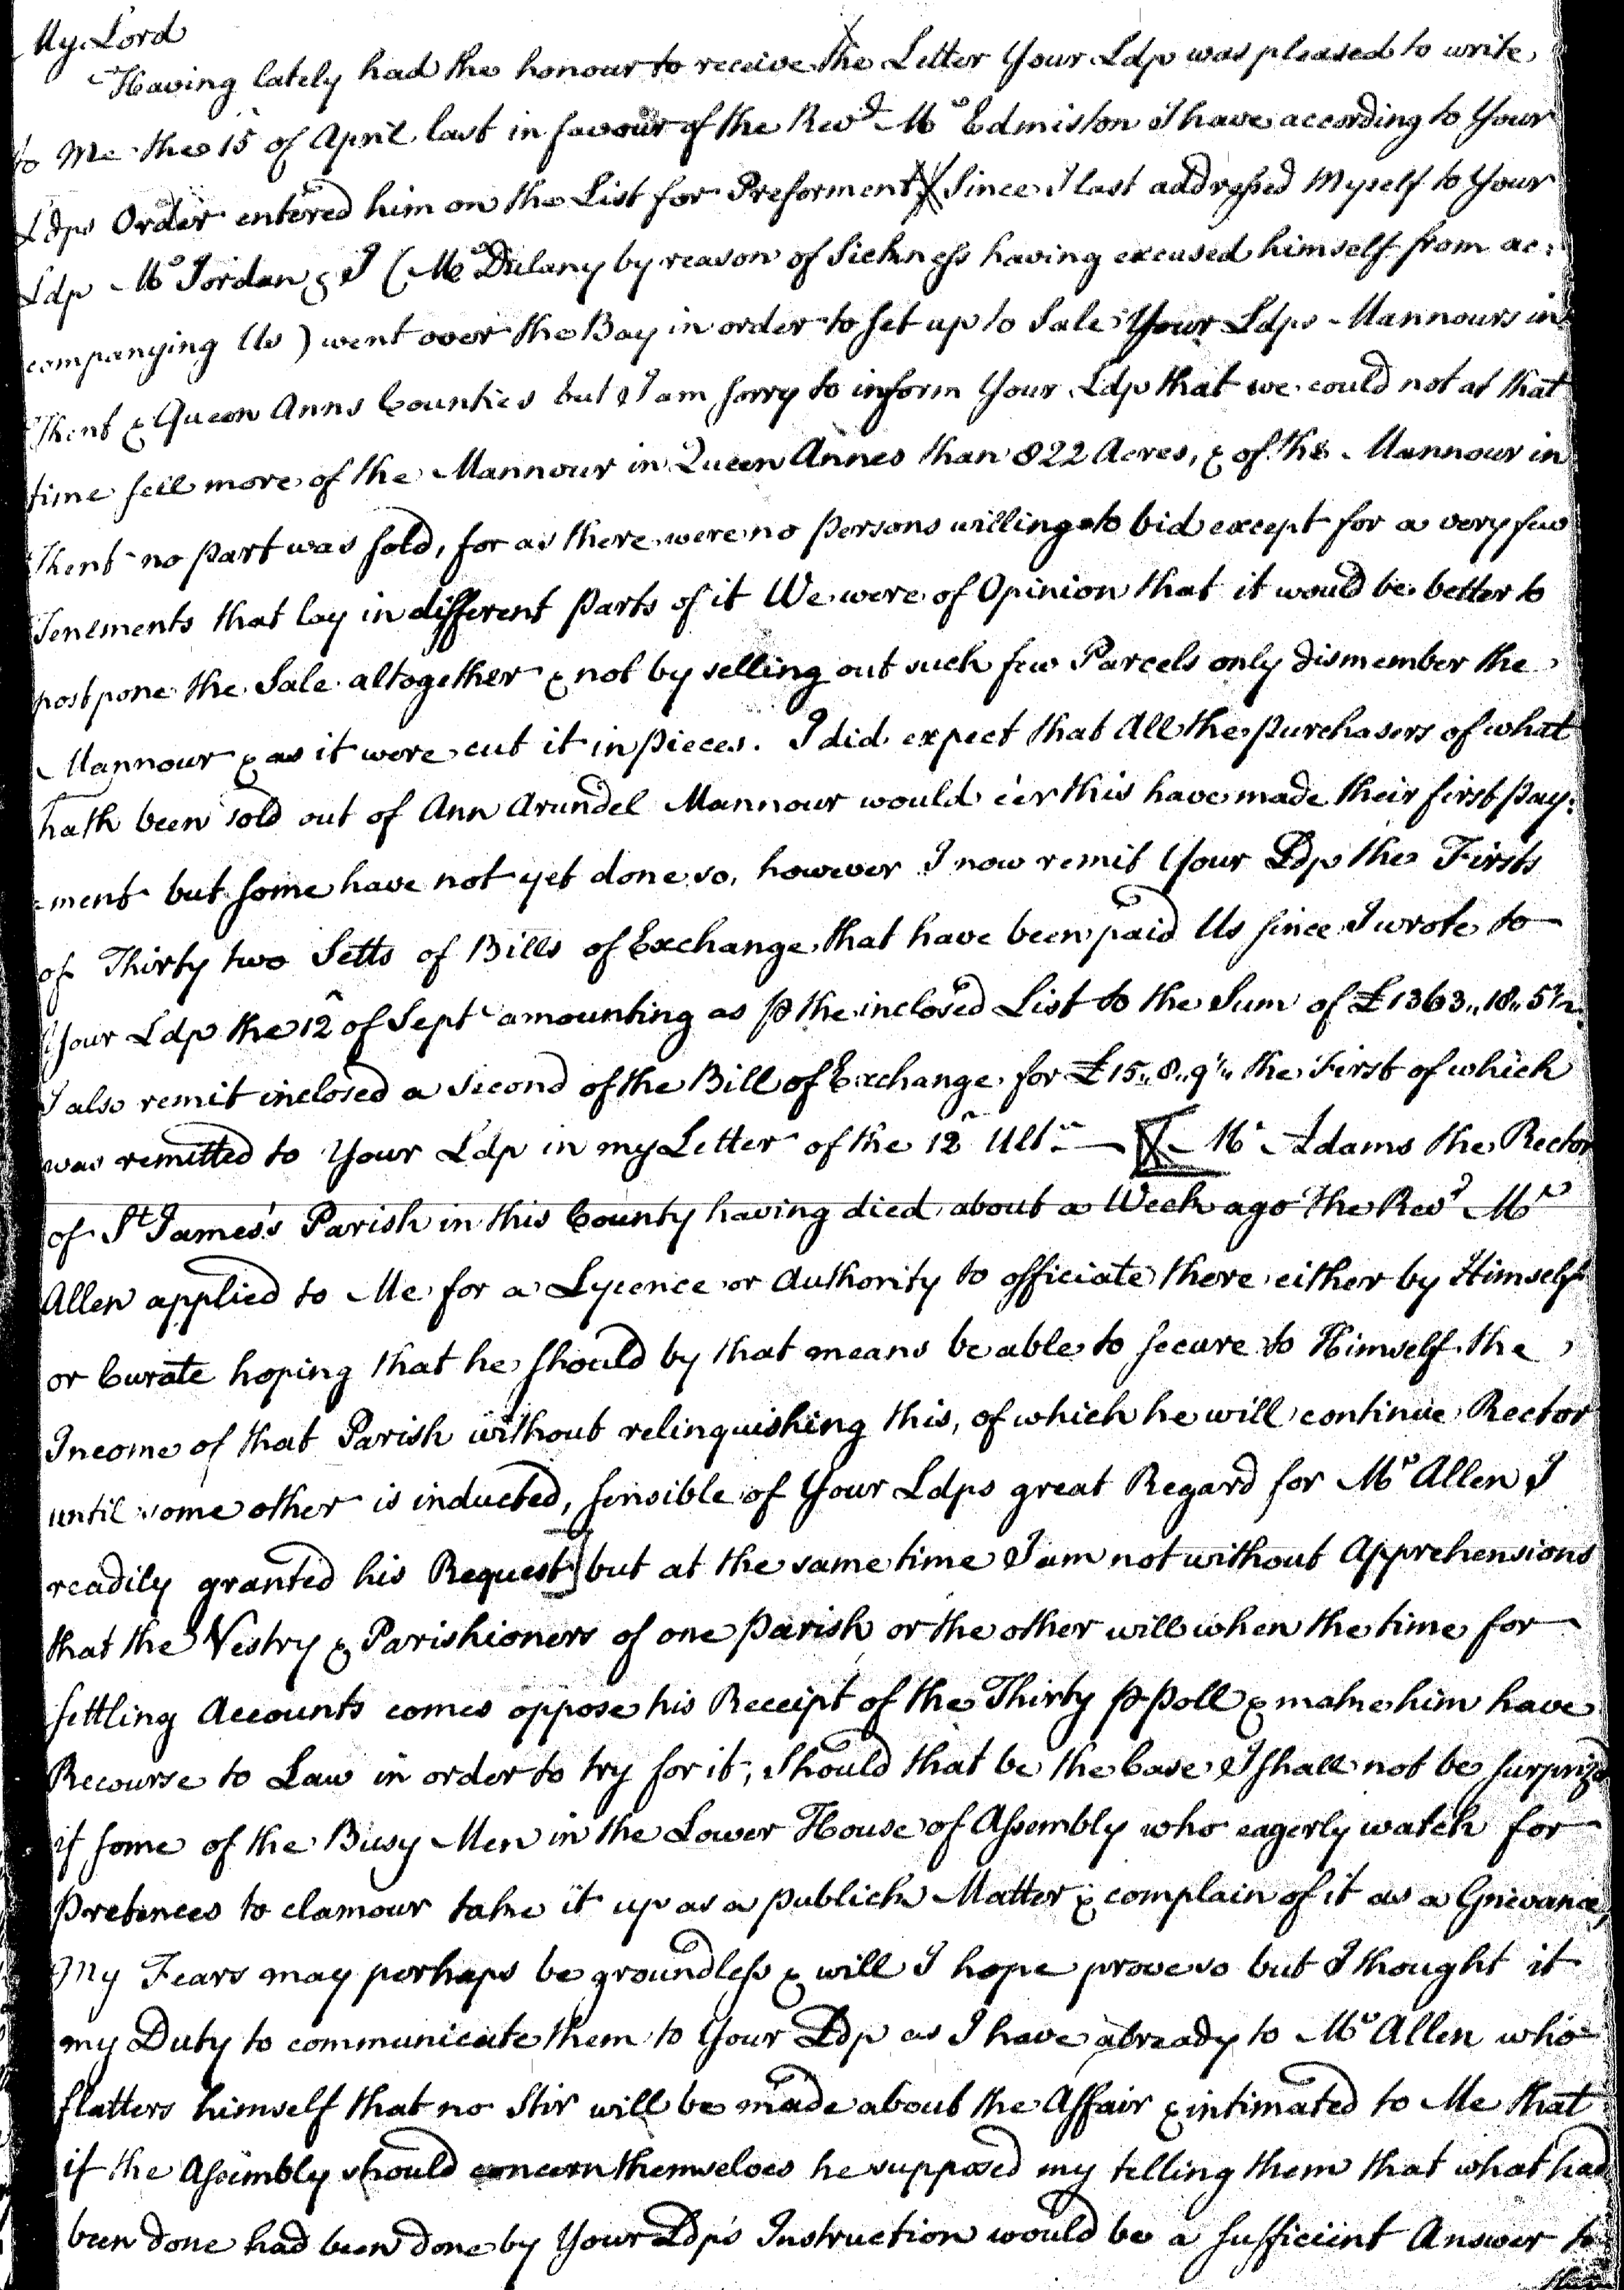 My Lord
Having lately had the honour to receive the Letter Your Ldp was pleased to write
to Me the 15 of April last in favour of the Revd Mr Edmiston I have according to Your
Ldps Order entered him on the List for Preferment Since I last addressed Myself to Your
Ldp Mr Jordan & I (Mr Dulany by reason of Sickness having excused himself from ac:
companying Us) went over the Bay in order to set up to Sale Your Ldps Mannours in
Kent & Queen Anns Counties but I am sorry to inform Your Ldp that we could not at that
time sell more of the Mannour in Queen Annes than 822 Acres, & of the Mannour in
Kent no part was sold, for as there were no persons willing to bid except for a very few
Tenements that lay in different Parts of it We were of Opinion that it would be better to
postpone the Sale altogether & not by selling out such few Parcels only dismember the
Mannour & as it were cut it in pieces. I did expect that All the purchasers of what
hath been sold out of Ann Arundel Mannour would e'er this have made their first pay:
:ment but some have not yet done so, however I now remit Your Ldp the Firsts
of Thirty two Setts of Bills of Exchange that have been paid Us since I wrote to
Your Ldp the 12 of Sept amounting as ⅌ the inclosed List to the Sum of £1363,,18,,5½
I also remit inclosed a second of the Bill of Exchange for £15,,8,,9 the first of which
was remitted to Your Ldp in my Letter of the 12 Ult. — Mr Adams the Rector
of St James's Parish in this County having died about a Week ago the Revd Mr
Allen applied to Me for a Lycence or Authority to officiate there either by Himself
or Curate hoping that he should by that means be able to secure to Himself the
Income of that Parish without relinquishing this, of which he will continue Rector
until some other is inducted, sensible of Your Ldps great Regard for Mr Allen I
readily granted his Request] but at the same time I am not without Apprehensions
that the Vestry & Parishioners of one Parish or the other will when the time for
settling Accounts comes oppose his Receipt of the Thirty ⅌ Poll & make him have
Recourse to Law in order to try for it; should that be the Case I shall not be surprized
if some of the Busy Men in the Lower House of Assembly who eagerly watch for
Pretences to clamour take it up as a publick Matter & complain of it as a Grievance,
My Fears may perhaps be groundless & will I hope prove so but I thought it
my Duty to communicate them to Your Ldp as I have already to Mr Allen who
flatters himself that no Stir will be made about the Affair & intimated to Me that
if the Assembly should concern themselves he supposed my telling them that what had
been done had been done by Your Ldp's Instruction would be a sufficient Answer to